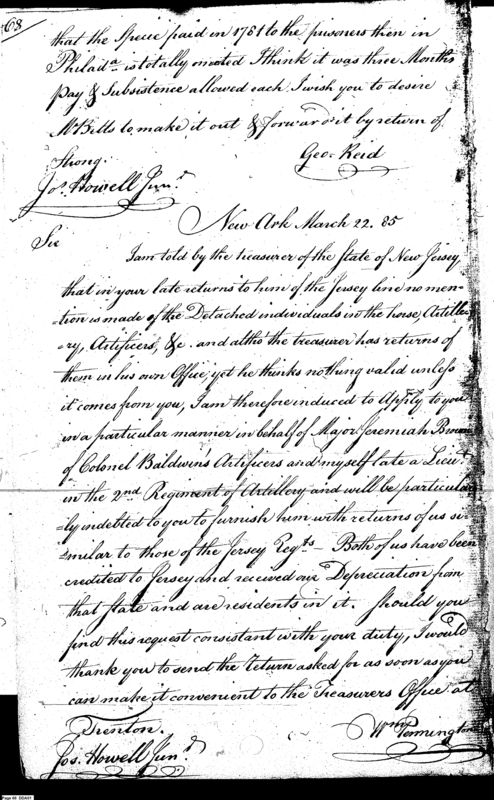 68
that the Specie paid in 1781 to the prisoners then in
Philada. is totally omitted I think it was three Months
pay & Subsistence allowed each I wish you to desire
Mr Bills to make it out & forward it by return of
Strong. Geo. Reid
Jos. Howell Junr.
New Ark March 22. 85
Sir
I am told by the treasurer of the State of New Jersey
that in your late returns to him of the Jersey line no men-
-tion is made of the Detached individuals in the horse, Artille-
-ry, Artificers, &c. and altho' the treasurer has returns of
them in his own Office, yet he thinks nothing valid unless
it comes from you, I am therefore induced to Apply to you
in a particular manner in behalf of Major Jeremiah Bruen
of Colonel Baldwin's Artificers and myself late a Lieut.
in the 2nd Regiment of Artillery and will be particular-
-ly indebted to you to furnish him with returns of us si-
-milar to those of the Jersey Regts – Both of us have been
credited to Jersey and received our Depreciation from
that State and are residents in it. Should you
find this request consistant with your duty, I would
thank you to send the return asked for as soon as you
can make it convenient to the Treasurers Office at
Trenton. Wm Pennington
Jos. Howell Junr.
Page 68 DDA01